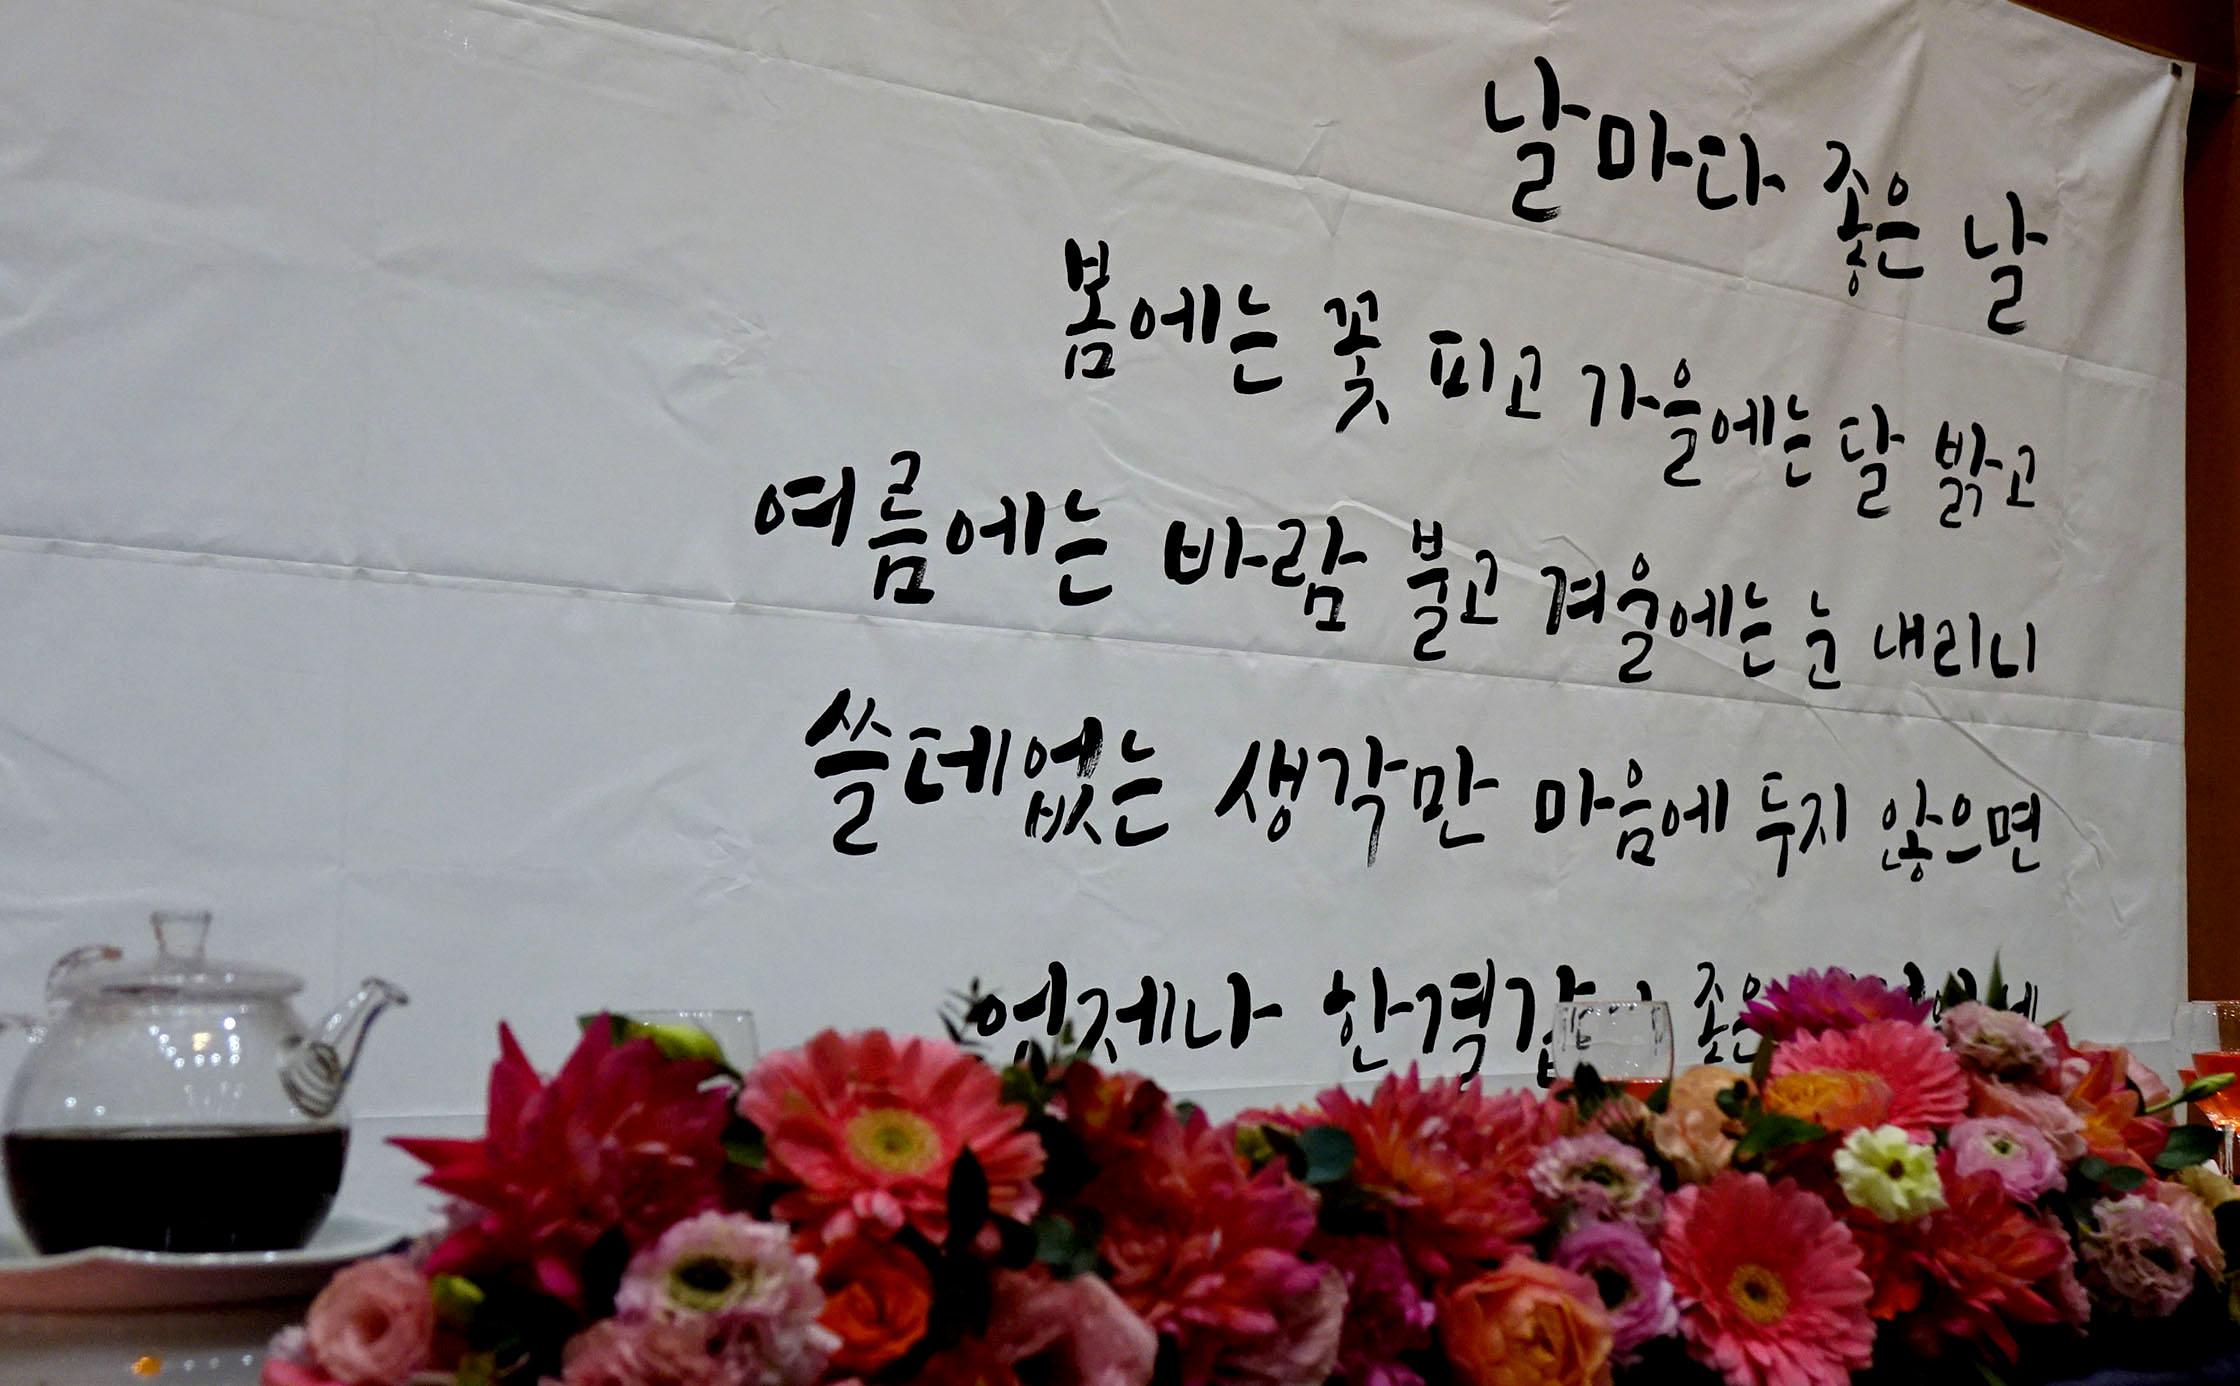 날마다 좋은 날
봄에는 꽃 피고 가을에는 달 밝고
여름에는 바람 불고 겨울에는 눈 내리니
쓸데없는 생각만 마음에 두지 않으면
언제나 한결같이 좋은